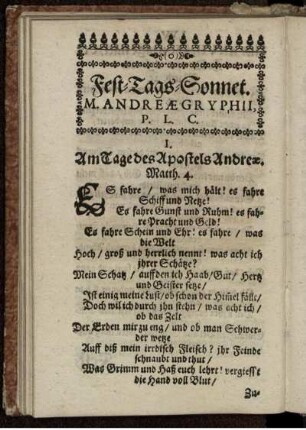 Fest-Tags-Sonnet.
M. ANDREÆ GRYPHII,
P. L. C.
I.
Am Tage des Apostels Andreæ.
Matth. 4.
ES fahre / was mich hält! es fahre
Schiff und Netze!
Es fahre Gunst und Ruhm! es fah-
re Pracht und Geld!
Es fahre Schein und Ehr! es fahre / was
die Welt
Hoch / groß und herrlich nennt! was acht ich
jhrer Schätze?
Mein Schatz / auff den ich Haab / Gut / Hertz
und Geister setze /
Ist einig meine Lust / ob schon der Him̃el fällt /
Doch wil ich durch jhn stehn / was acht ich /
ob das Zelt
Der Erden mir zu eng / und ob man Schwer-
der wetze
Auff diß mein irrdisch Fleisch? jhr Feinde
schnaubt und thut /
Was Grimm und Haß euch lehrt! vergiest
die Hand voll Blut /
Zu-